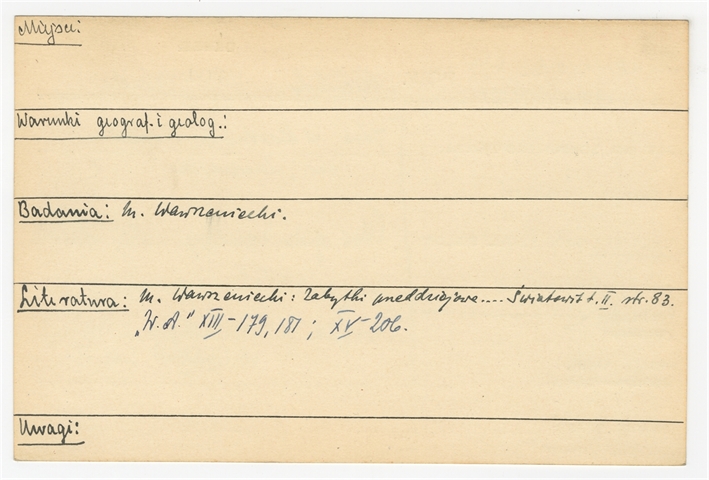 Miejsc:
Warunki geograf. i geolog.:
Badania: M. Wawrzeniecki.
Literatura: M. Wawrzeniecki: Zabytki przeddziejowe.... Światowit t. II str. 83.
„W. A." XIII-179, 181; XV-206.
Uwagi: